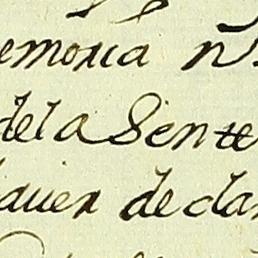 emoria n
dela Sente
auer declar